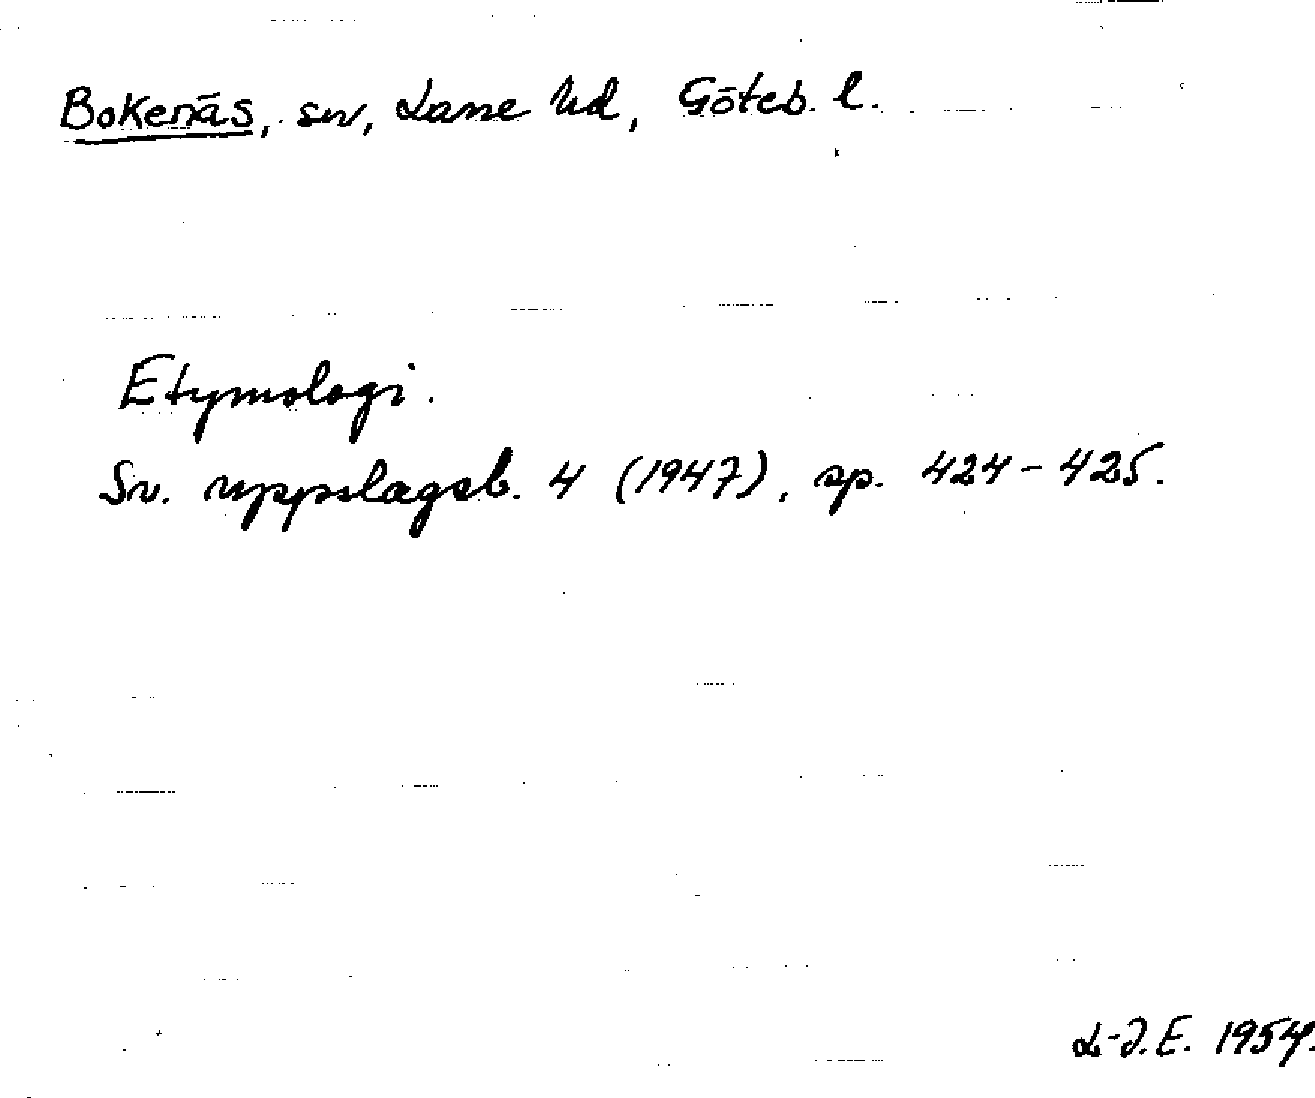 Bokenäs, sn, Lane hd, Göteb. l.
Etymologi.
Sv. uppslagsb. 4 (1947), sp. 424-425.
L-J.E. 1954.